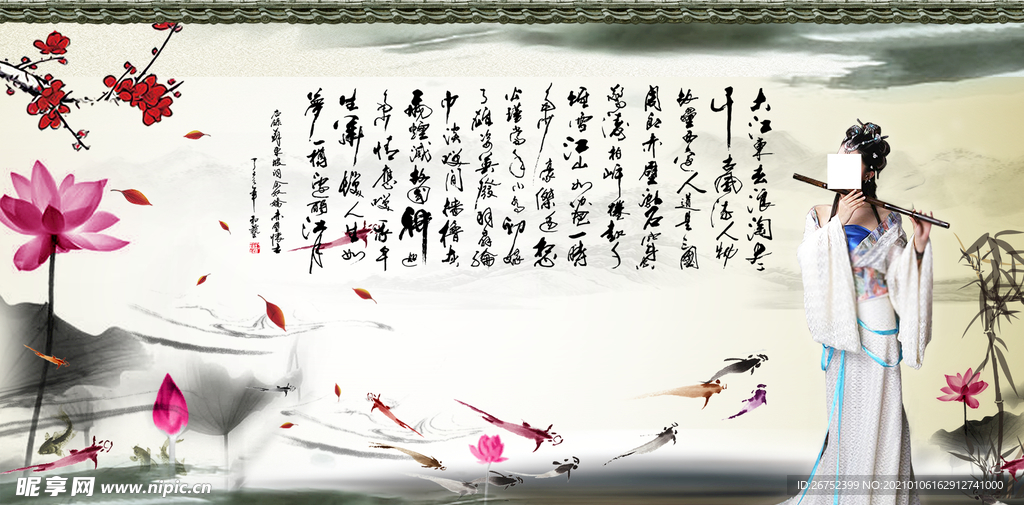 大江東去浪淘盡
千古風流人物
故壘西邊人道是三國
周郎赤壁亂石穿空
驚濤拍岸捲起千
堆雪江山如畫一時
多少豪傑遥想
公瑾當年小喬初嫁
了雄姿英發羽扇綸
巾談笑間檣櫓灰
飛煙滅故國神遊
多情應笑我早
生華髮人生如
夢一樽還酹江月
蘇東坡詞念奴嬌赤壁懷古
昵享网 www.nipic.cn
ID:26752399 NO:20210106162912741000